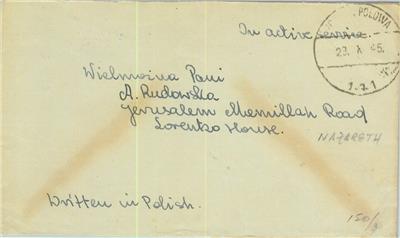 In active service.
POLOWA
Wielmożna Pani
A. Rudowska
Jerusalem Memillah Road
Lorenko House.
NAZARETH
Written in Polish.